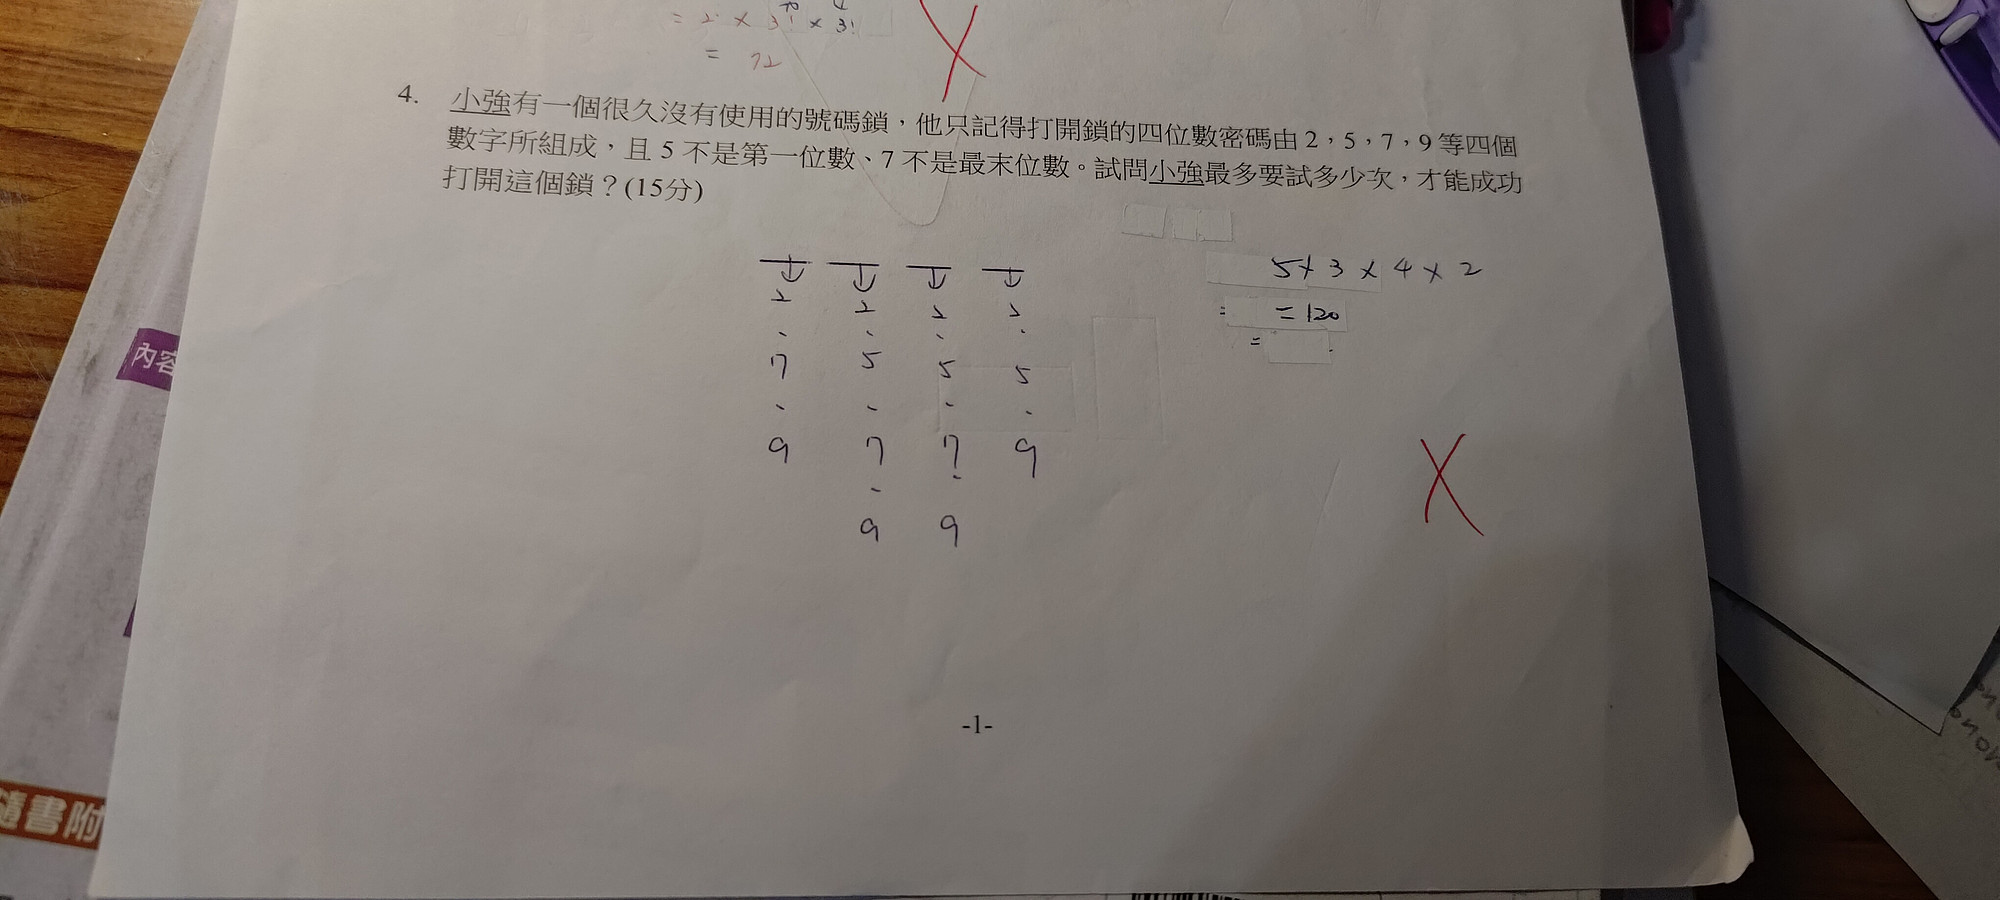 = 2 × 3! × 3!
= 72
4. 小強有一個很久沒有使用的號碼鎖，他只記得打開鎖的四位數密碼由 2，5，7，9 等四個
數字所組成，且 5 不是第一位數、7 不是最末位數。試問小強最多要試多少次，才能成功
打開這個鎖？(15分)
5 × 3 × 4 × 2
= = 120
=
2 2 2 2
7 5 5 5
9 7 7 9
9 9
-1-
內容
隨書附